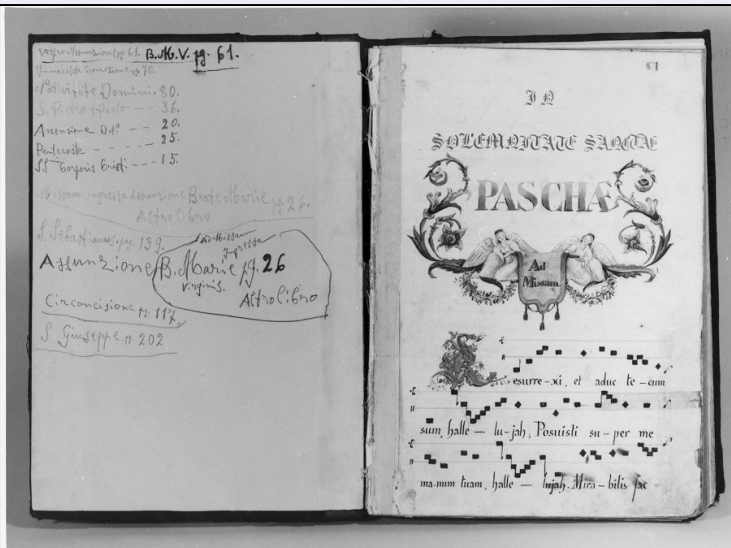 B. M. V. pg. 61.
Natività Domini 80.
S. Pietro -- 36.
Ascensione D.ni -- 20.
Pentecoste -- 25.
SS Corporis Cristi -- 15.
Missam ingressa Assunzione Beate Marie pg. 26.
Altro libro
S. Sebastianus pg. 139.
Ad Missam
Ingressa
Assunzione B. Marie pg. 26
Virginis.
Altro libro
Circoncisione pg. 117.
S. Giuseppe pg. 202
IN
SOLEMNITATE SANCTÆ
PASCHÆ
Ad
Missam
Resurre-xi, et aduc te-cum
sum, halle - lu-jah, Posuisti su-per me
ma-num tuam, halle - lujah. Mira-bilis fac-